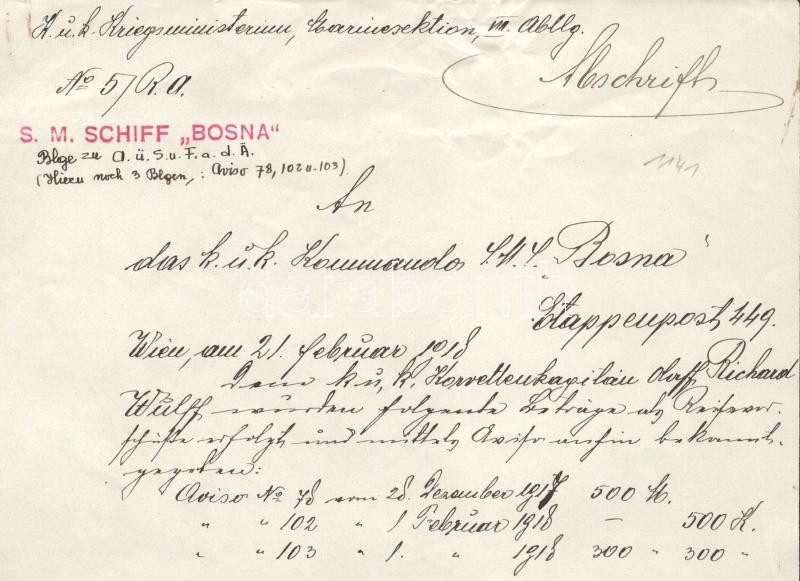 K. u. k. Kriegsministerium, Marinesektion, VII. Abtlg.
Abschrift
No 5/R.A.
S. M. SCHIFF „BOSNA“
Blge zu A. ü. S. u. F. a. d. Ä.
(Hiezu noch 3 Blgen, : Aviso 78, 102 u. 103).
1141
An
das k. u. k. Kommando S. M. S. „Bosna“
Etappenpost 449.
Wien, am 21. Februar 1918
Dem k. u. k. Korvettenkapitän Richard
Wulff wurden folgende Beträge als Reisevor-
schüße erfolgt und mittels Aviso anhin bekannt-
gegeben:
Aviso No 78 vom 28. Dezember 1917 500 M.
" " 102 " 1 Februar 1918 — 500 K.
" " 103 " 1. " 1918 300 " 300 "